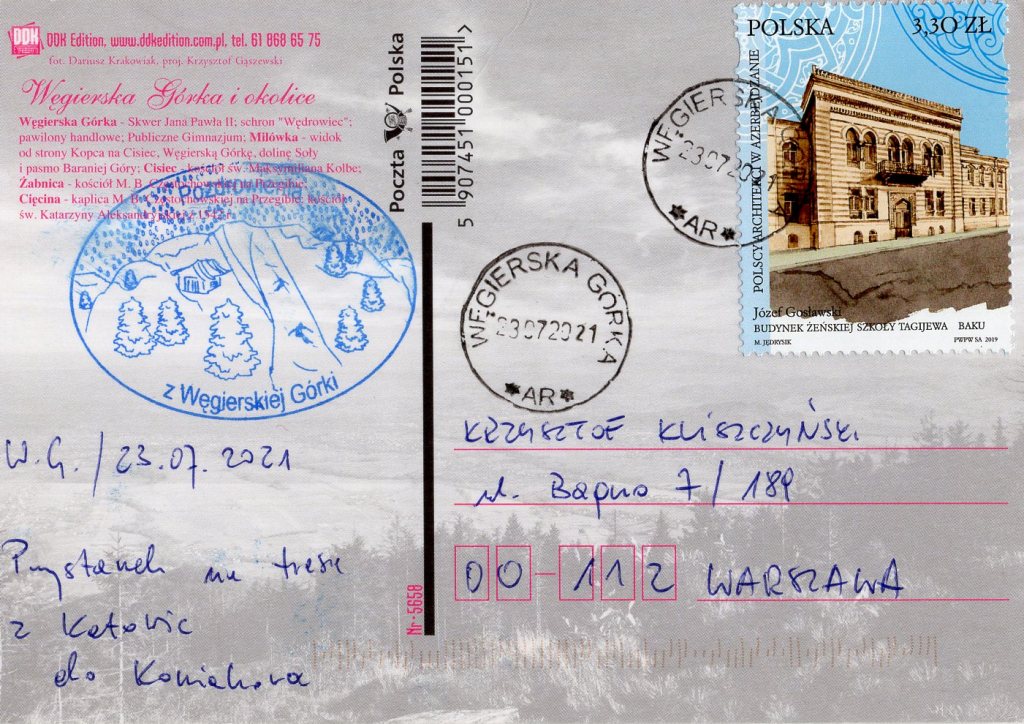 DDK Edition, www.ddkedition.com.pl, tel. 61 868 65 75
fot. Dariusz Krakowiak, proj. Krzysztof Gąszewski
Węgierska Górka i okolice
Węgierska Górka - Skwer Jana Pawła II; schron "Wędrowiec";
pawilony handlowe; Publiczne Gimnazjum; Milówka - widok
od strony Kopca na Cisiec, Węgierską Górkę, dolinę Soły
i pasmo Baraniej Góry; Cisiec - kościół św. Maksymiliana Kolbe;
Żabnica - kościół M. B. Częstochowskiej na Przegibie;
Cięcina - kaplica M. B. Częstochowskiej na Przegibie; kościół
św. Katarzyny Aleksandryjskiej z 1542 r.
Pozdrowienia
z Węgierskiej Górki
W.G. / 23.07.2021
Przystanek na trasie
z Katowic
do Koniakowa
Nr - 5658
Poczta Polska
5 907451 000151 >
WĘGIERSKA GÓRKA
23072021
*AR*
WĘGIERSKA
2307202
*AR*
POLSKA 3,30 ZŁ
POLSCY ARCHITEKCI W AZERBEJDŻANIE
Józef Gosławski
BUDYNEK ŻEŃSKIEJ SZKOŁY TAGIJEWA BAKU
M. JĘDRYSIK PWPW SA 2019
KRZYSZTOF KLISZCZYŃSKI
ul. Bagno 7/189
00-112 WARSZAWA